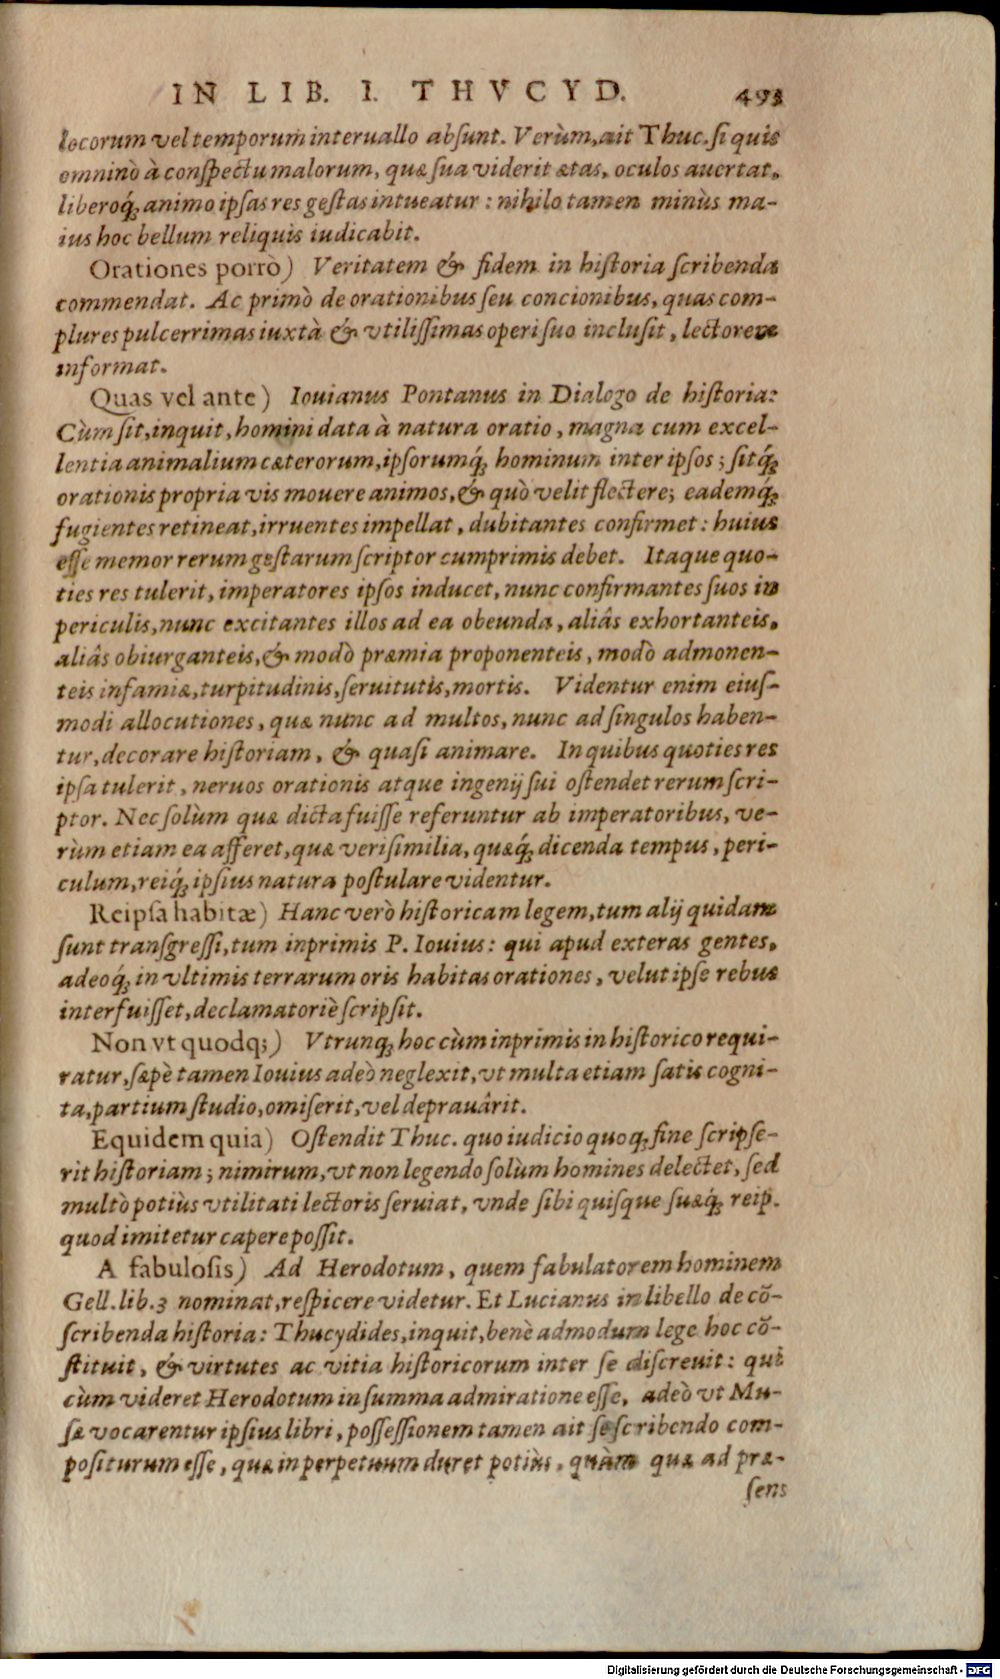 IN LIB. I. THVCYD. 493
locorum vel temporum interuallo absunt. Verùm, ait Thuc. si quis
omninò à conspectu malorum, quæ sua viderit ætas, oculos auertat,
liberoq́; animo ipsas res gestas intueatur : nihilo tamen minùs ma-
ius hoc bellum reliquis iudicabit.
Orationes porrò) Veritatem & fidem in historia scribenda
commendat. Ac primò de orationibus seu concionibus, quas com-
plures pulcerrimas iuxtà & vtilissimas operi suo inclusit, lectorem
informat.
Quas vel ante) Iouianus Pontanus in Dialogo de historia:
Cùm sit, inquit, homini data à natura oratio, magna cum excel-
lentia animalium cæterorum, ipsorumq́; hominum inter ipsos ; sitq́;
orationis propria vis mouere animos, & quò velit flectere; eademq́;
fugientes retineat, irruentes impellat, dubitantes confirmet: huius
esse memor rerum gestarum scriptor cumprimis debet. Itaque quo-
ties res tulerit, imperatores ipsos inducet, nunc confirmantes suos in
periculis, nunc excitantes illos ad ea obeunda, aliâs exhortanteis,
aliâs obiurganteis, & modò præmia proponenteis, modò admonen-
teis infamiæ, turpitudinis, seruitutis, mortis. Videntur enim eius-
modi allocutiones, quæ nunc ad multos, nunc ad singulos haben-
tur, decorare historiam, & quasi animare. In quibus quoties res
ipsa tulerit, neruos orationis atque ingenij sui ostendet rerum scri-
ptor. Nec solùm quæ dicta fuisse referuntur ab imperatoribus, ve-
rùm etiam ea afferet, quæ verisimilia, quæq́; dicenda tempus, peri-
culum, reiq́; ipsius natura postulare videntur.
Reipsa habitæ) Hanc verò historicam legem, tum alij quidam
sunt transgressi, tum inprimis P. Iouius: qui apud exteras gentes,
adeoq́; in vltimis terrarum oris habitas orationes, velut ipse rebus
interfuisset, declamatoriè scripsit.
Non vt quodq;) Vtrunq; hoc cùm inprimis in historico requi-
ratur, sæpè tamen Iouius adeò neglexit, vt multa etiam satis cogni-
ta, partium studio, omiserit, vel deprauârit.
Equidem quia) Ostendit Thuc. quo iudicio quoq; fine scripse-
rit historiam ; nimirum, vt non legendo solùm homines delectet, sed
multò potiùs vtilitati lectoris seruiat, vnde sibi quisque suæq́; reip.
quod imitetur capere possit.
A fabulosis) Ad Herodotum, quem fabulatorem hominem
Gell. lib. 3 nominat, respicere videtur. Et Lucianus in libello de cō-
scribenda historia: Thucydides, inquit, benè admodum lege hoc cō-
stituit, & virtutes ac vitia historicorum inter se discreuit: qui
cùm videret Herodotum in summa admiratione esse, adeò vt Mu-
sæ vocarentur ipsius libri, possessionem tamen ait se scribendo com-
positurum esse, quæ in perpetuum duret potiùs, quàm quæ ad præ-
sens
Digitalisierung gefördert durch die Deutsche Forschungsgemeinschaft - DFG